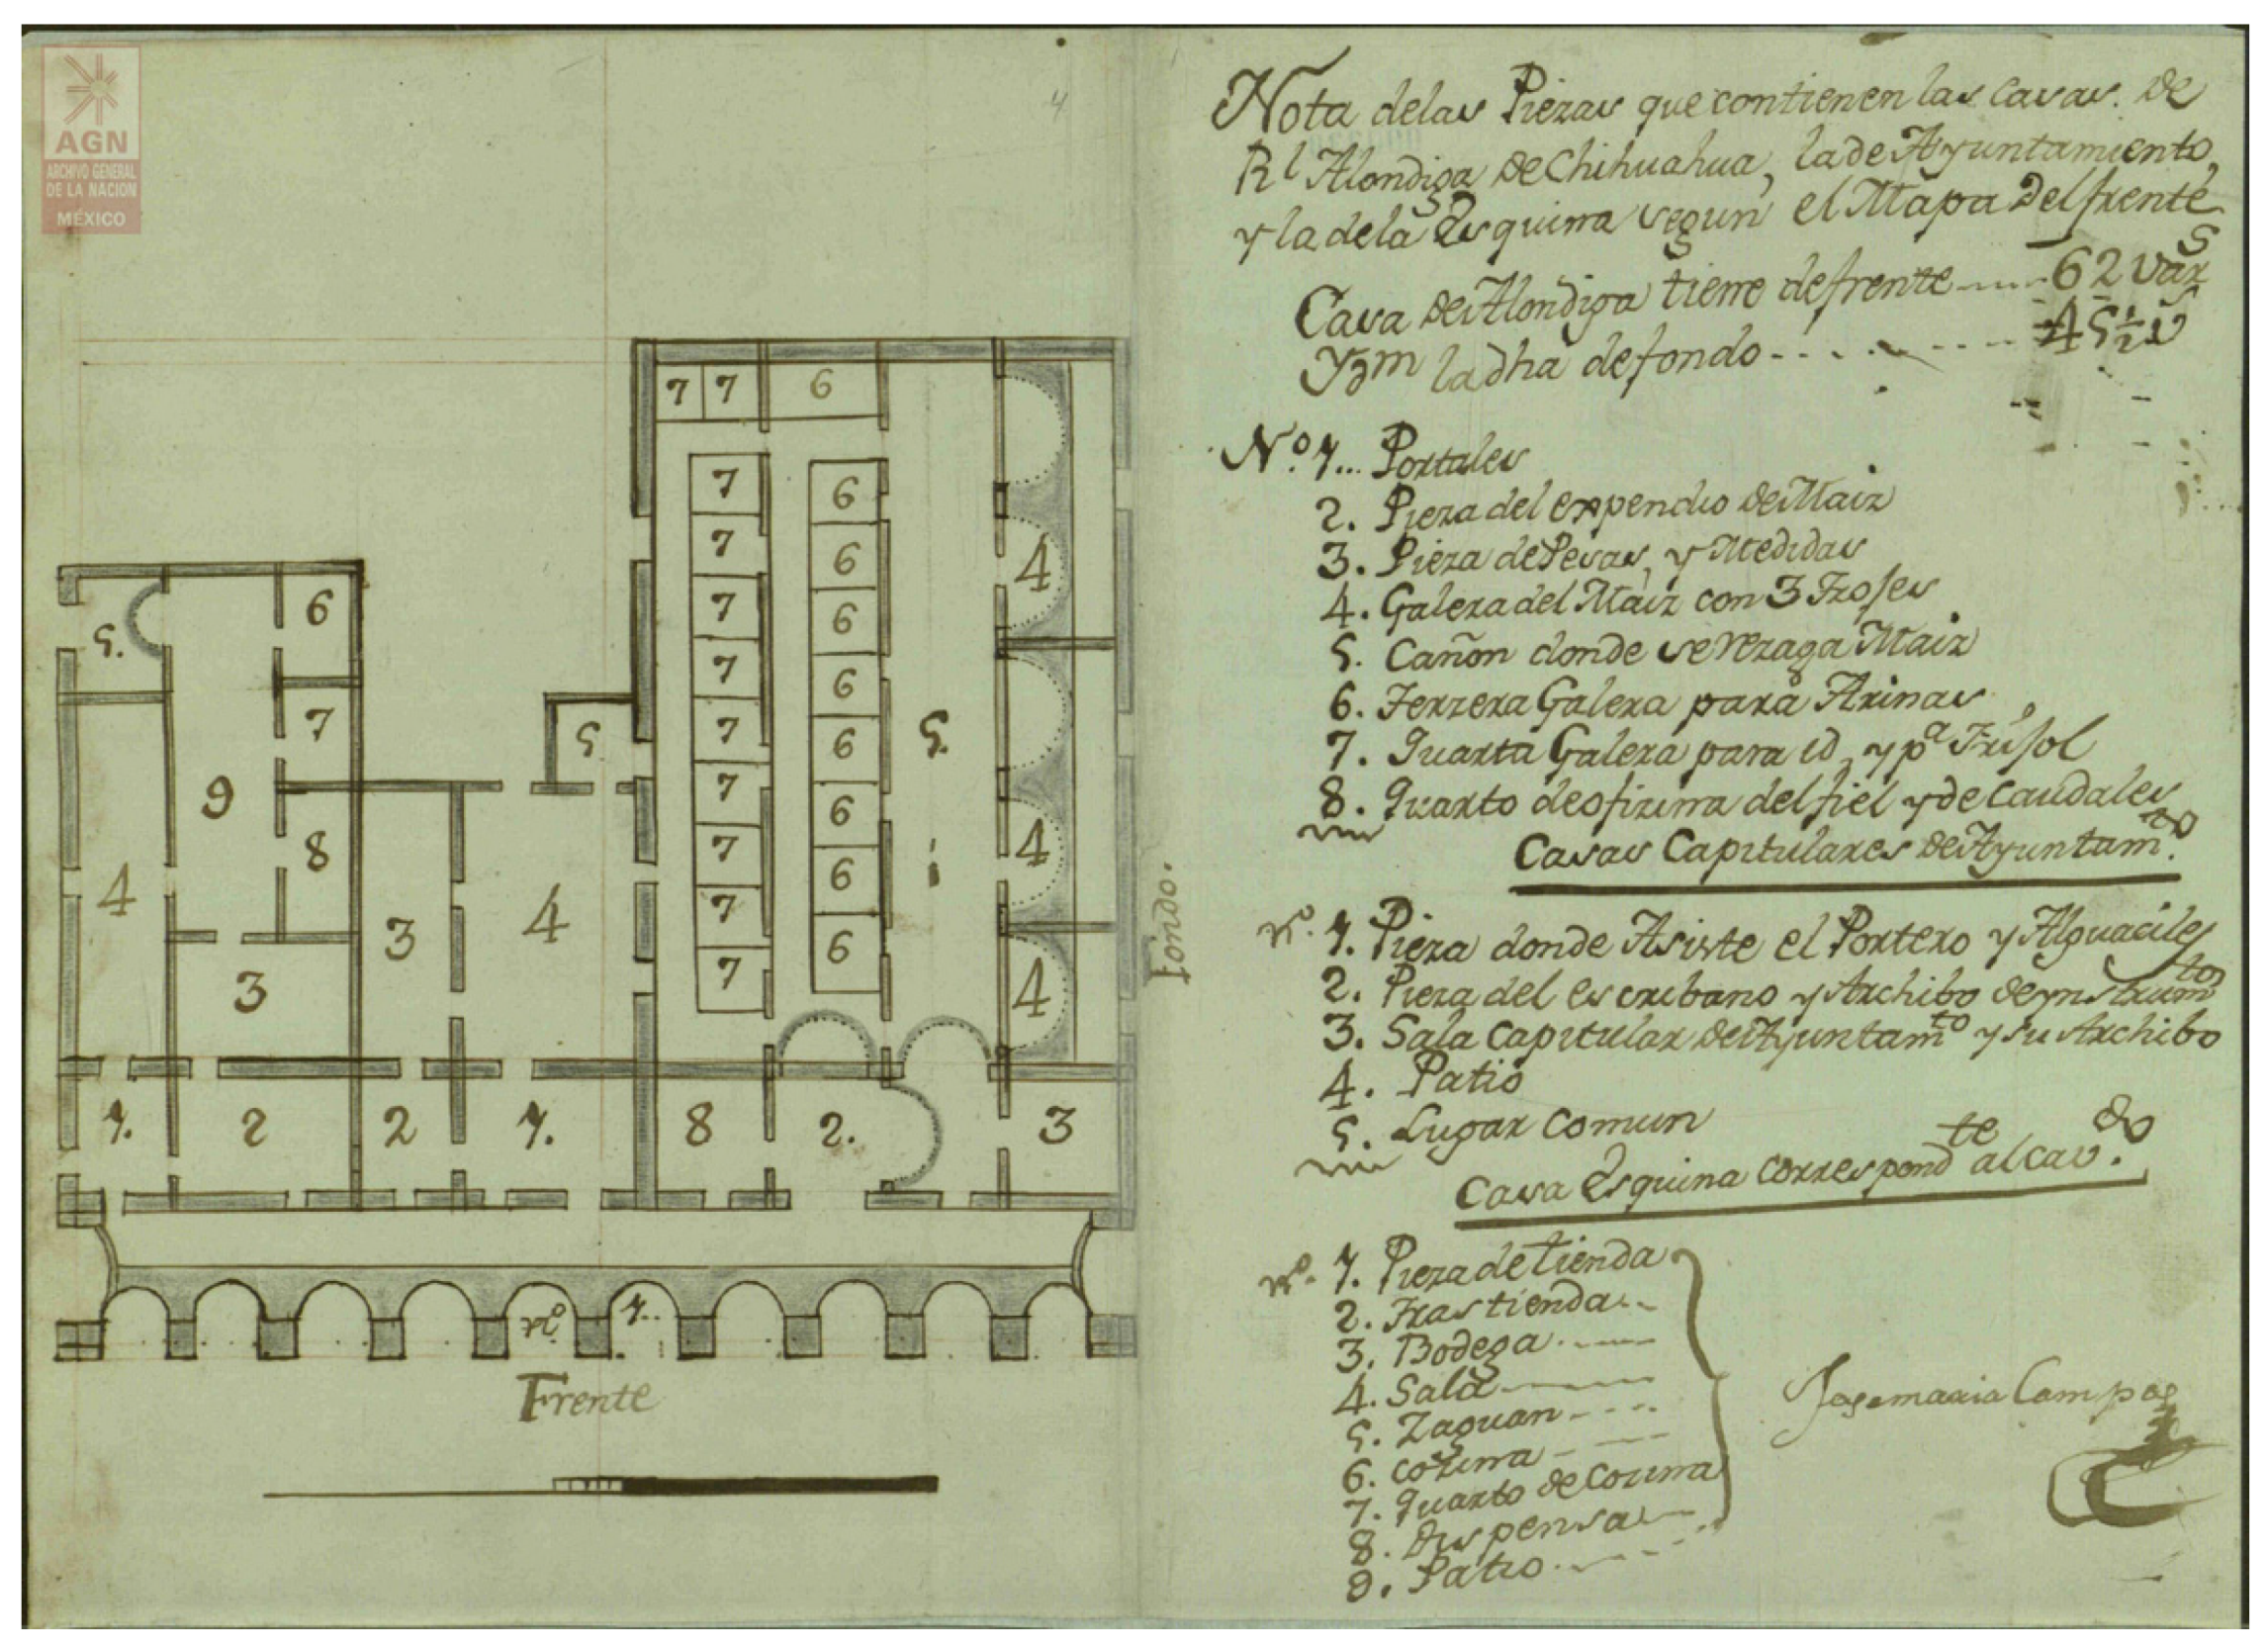 AGN
ARCHIVO GENERAL
DE LA NACION
MÉXICO
4
7 7 6
7 6
7 6
7 6
7 6
7 6
7 6
7 6
7 6
7
5.
4
4
4
5.
6
7
9
8
4
3
3
4
5
1. 2 2 1. 8 2. 3
No 1..
Frente
Fondo.
Nota delas Piezas que contienen las Casas. de
Rl Alondiga de Chihuahua, la de Ayuntamiento,
y la dela Esquina segun el Mapa Del frente
Casa de Alondiga tiene de frente 62 vars
Ydm la dha de fondo 45½ v
No. 1... Portales
2. Pieza del expendio de Maiz
3. Pieza de Pesas, y Medidas
4. Galera del Maiz con 3 Troses
5. Cañon donde se rezaga Maiz
6. Terzera Galera para Arinas
7. Quarta Galera para id, y pa Frisol
8. Quarto de ofizina del fiel y de Caudales
Casas Capitulares de Ayuntamto.
No. 1. Pieza donde Asiste el Portero y Alguaciles
2. Pieza del escribano y Archibo de ynstrumtos
3. Sala Capitular de Ayuntamto y su Archibo
4. Patio
5. Lugar Comun
Casa Esquina Correspondte al cavdo.
No. 1. Pieza de tienda
2. Tras tienda..
3. Bodega
4. Sala
5. Zaguan
6. Cozina
7. Quarto de Cozina
8. Dispensa
9. Patio
Josemaria Campos